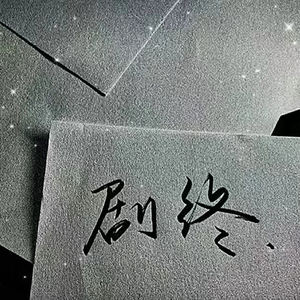 剧终、